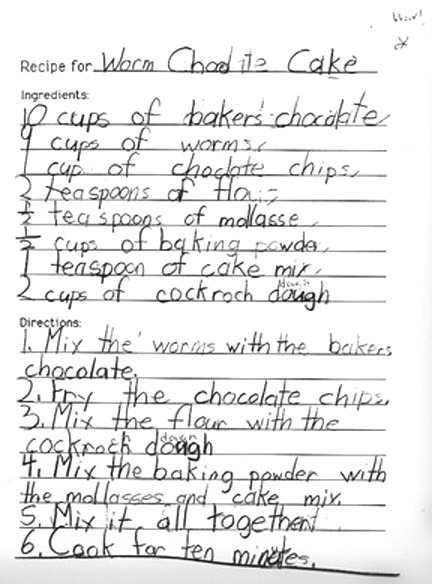 Wow!
Recipe for Worm Choclite Cake
Ingredients:
10 cups of bakers chocolate
9 cups of worms
1 cup of choclate chips
2 teaspoons of flour
½ teaspoons of mollasse
½ cups of baking powder
1 teaspoon of cake mix
2 cups of cockroch dough
Directions:
1. Mix the worms with the bakers
chocolate.
2. Fry the chocolate chips.
3. Mix the flour with the
cockroch dough
4. Mix the baking powder with
the mollasses and cake mix.
5. Mix it all together!
6. Cook for ten minetes.